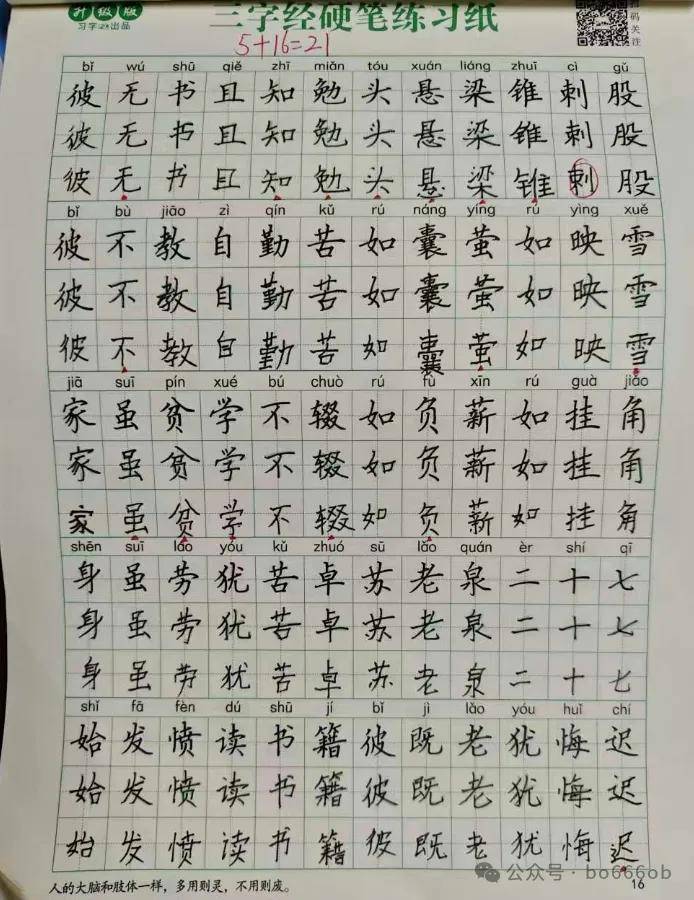 升级版
习字出品
三字经硬笔练习纸
扫码关注
5+16=21
bǐ wú shū qiě zhī miǎn tóu xuán liáng zhuī cì gǔ
彼 无 书 且 知 勉 头 悬 梁 锥 刺 股
彼 无 书 且 知 勉 头 悬 梁 锥 刺 股
彼 无 书 且 知 勉 头 悬 梁 锥 刺 股
bǐ bù jiāo zì qín kǔ rú náng yíng rú yìng xuě
彼 不 教 自 勤 苦 如 囊 萤 如 映 雪
彼 不 教 自 勤 苦 如 囊 萤 如 映 雪
彼 不 教 自 勤 苦 如 囊 萤 如 映 雪
jiā suī pín xué bú chuò rú fù xīn rú guà jiǎo
家 虽 贫 学 不 辍 如 负 薪 如 挂 角
家 虽 贫 学 不 辍 如 负 薪 如 挂 角
家 虽 贫 学 不 辍 如 负 薪 如 挂 角
shēn suī láo yóu kǔ zhuó sū lǎo quán èr shí qī
身 虽 劳 犹 苦 卓 苏 老 泉 二 十 七
身 虽 劳 犹 苦 卓 苏 老 泉 二 十 七
身 虽 劳 犹 苦 卓 苏 老 泉 二 十 七
shǐ fā fèn dú shū jí bǐ jì lǎo yóu huǐ chí
始 发 愤 读 书 籍 彼 既 老 犹 悔 迟
始 发 愤 读 书 籍 彼 既 老 犹 悔 迟
始 发 愤 读 书 籍 彼 既 老 犹 悔 迟
人的大脑和肢体一样，多用则灵，不用则废。
16
公众号 · bo666ob